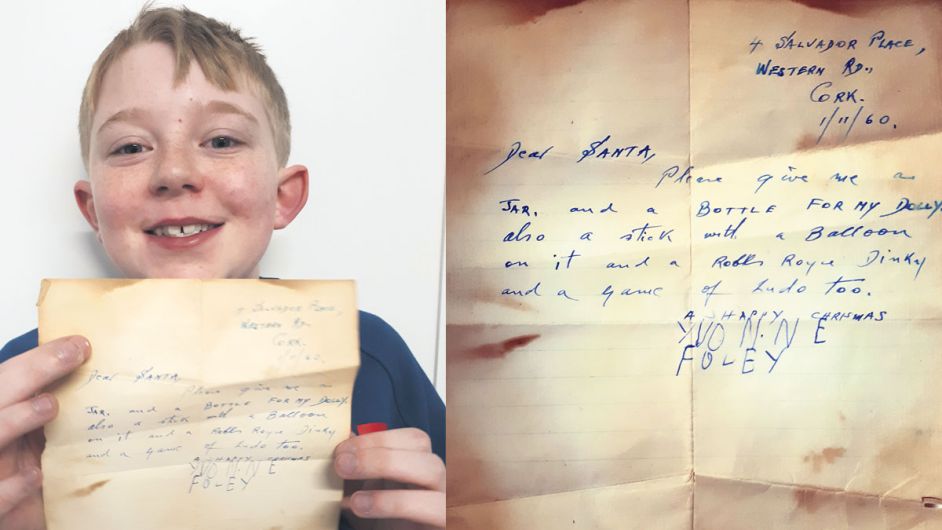 4 SALVADOR PLACE,
WESTERN RD.,
CORK.
1/11/60.
Dear SANTA,
Please give me a
JAR. and a BOTTLE FOR MY DOLLY.
also a stick with a Balloon
on it and a Rolls Royce Dinky
and a game of Ludo too.
A HAPPY CHRISMAS
YVO N.N E
FOLEY
4 SALVADOR PLACE,
WESTERN RD.
CORK.
1/11/60.
Dear SANTA,
Please give me a
JAR. and a BOTTLE FOR MY DOLLY.
also a stick with a Balloon
on it and a Rolls Royce Dinky
and a game of Ludo too.
A HAPPY CHRISMAS
YVO N.N E
FOLEY